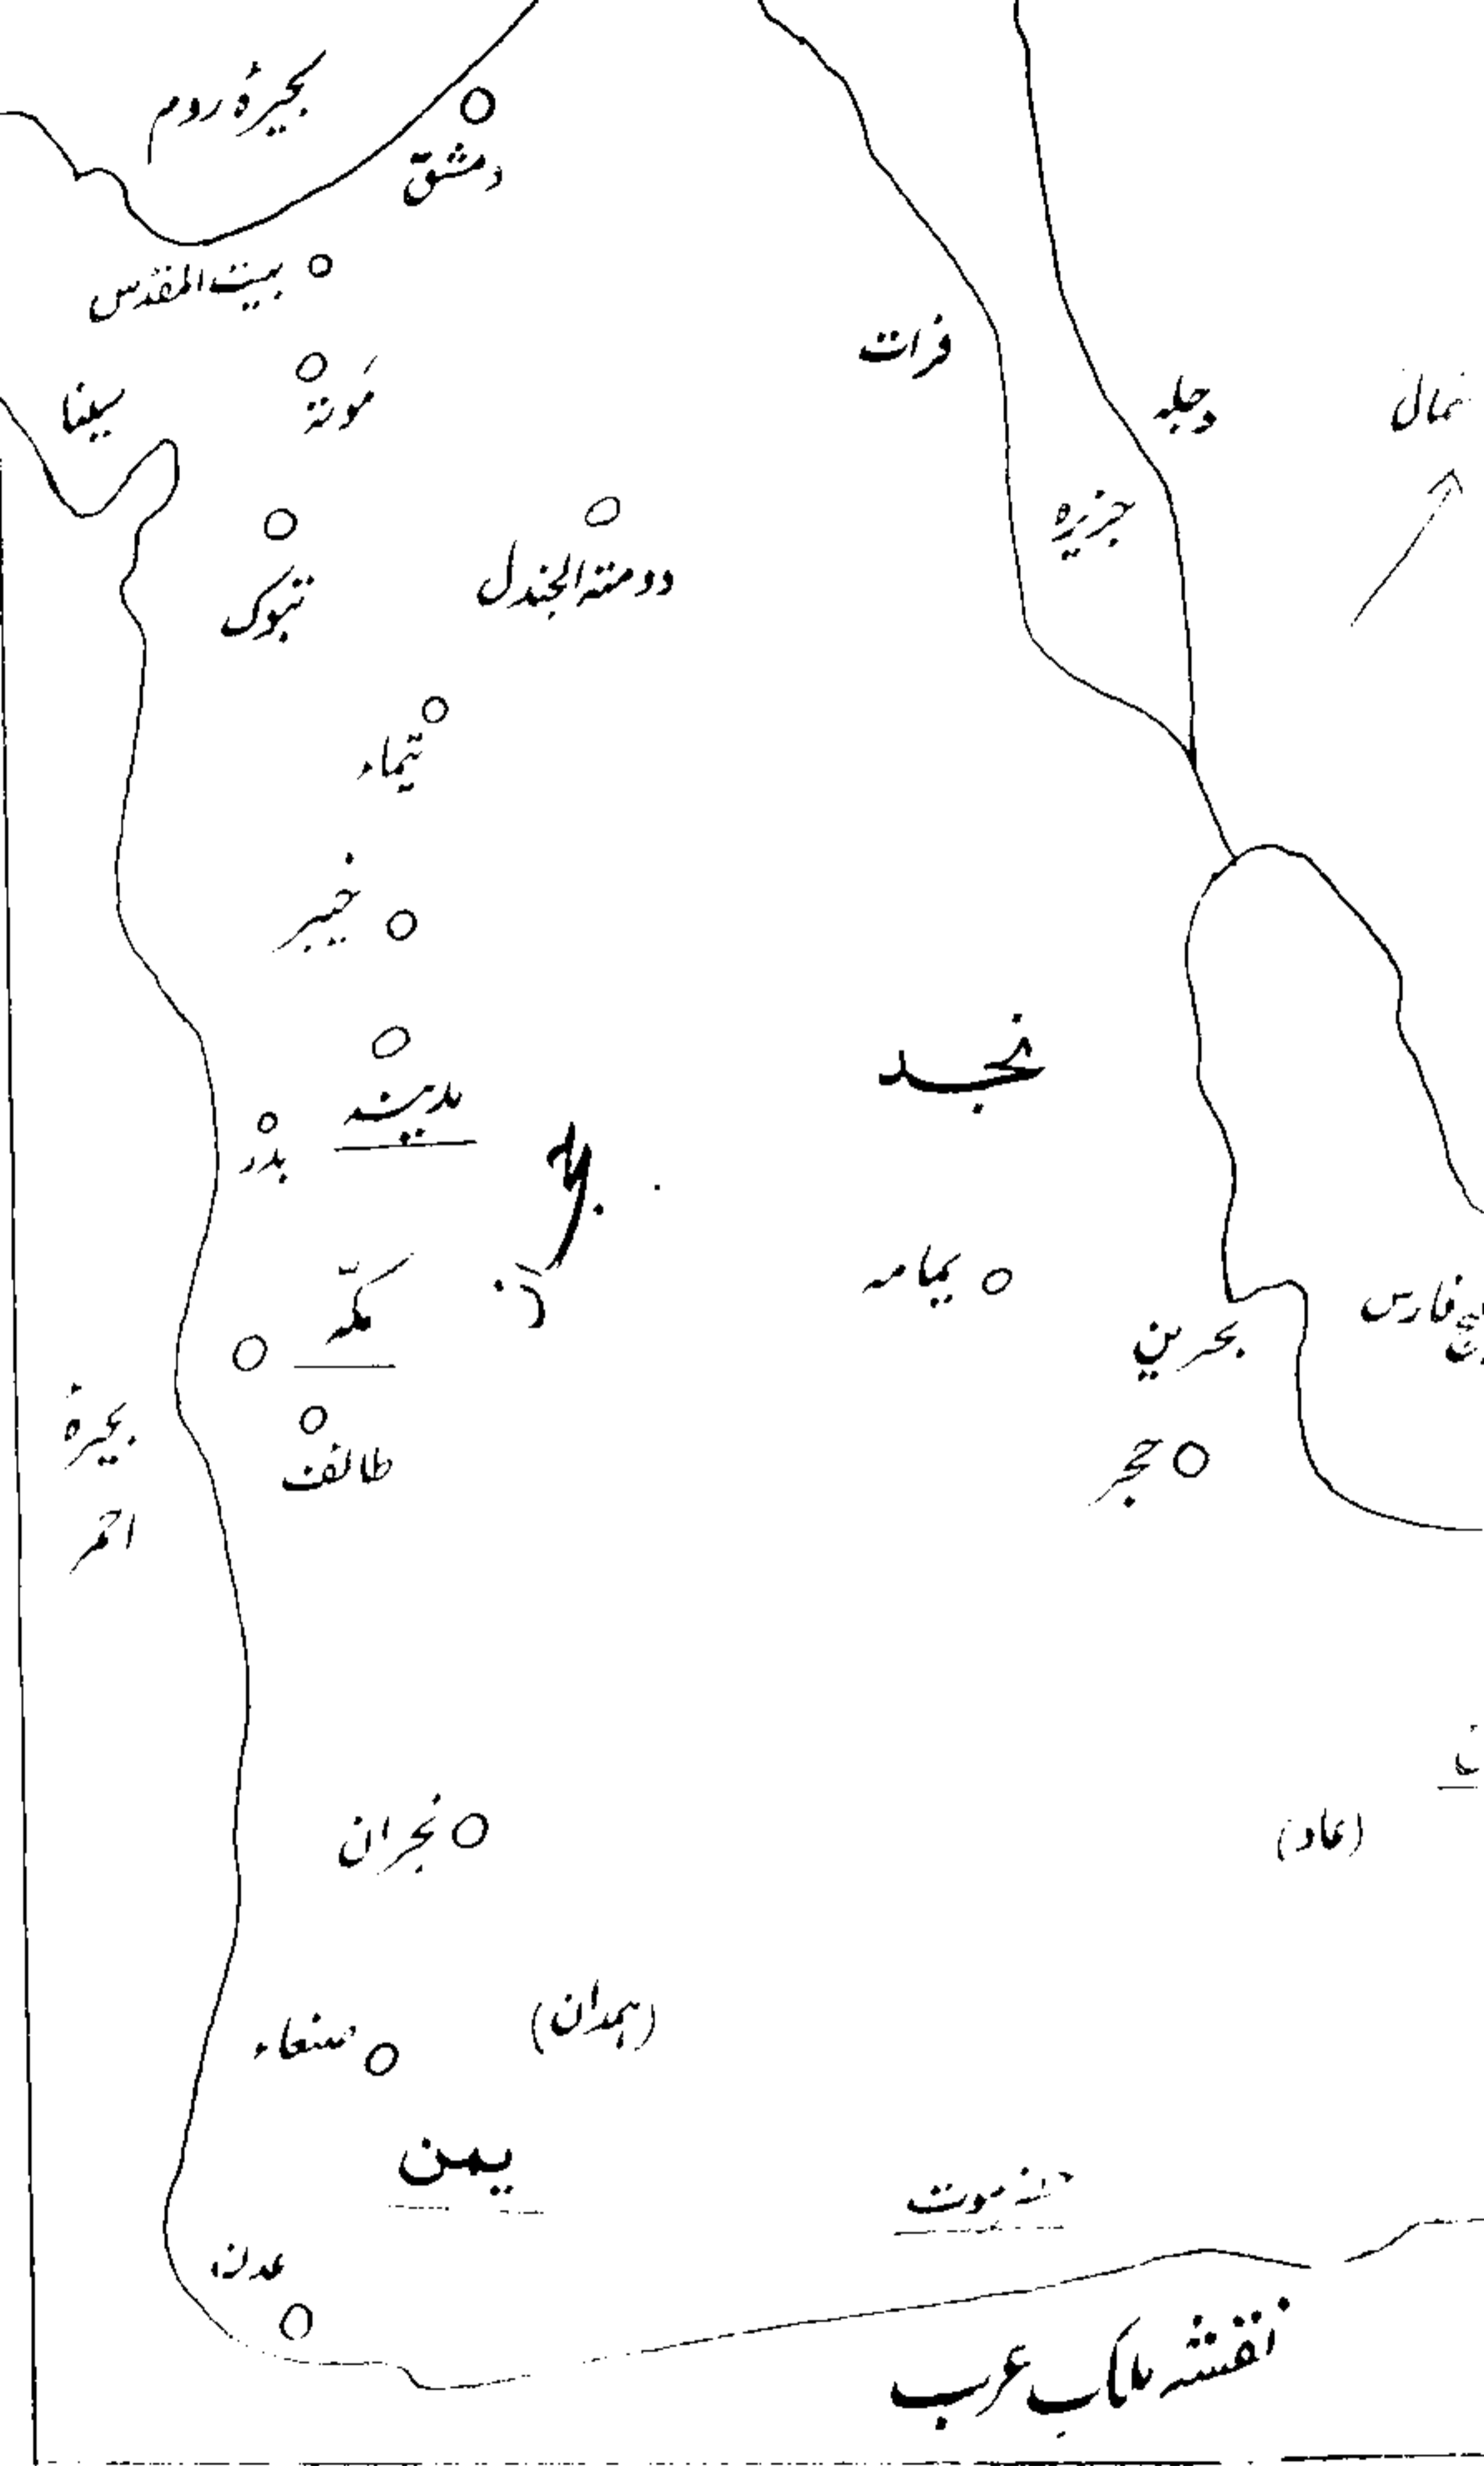 بحیرۂ روم
دمشق
بیت المقدس
فرات
موتة
سینا
دجلہ
شمال
جزیرہ
تبوک
دومتہ الجندل
تیماء
خیبر
نجد
مدینہ
بدر
حجاز
مکّہ
یمامہ
خلیج فارس
بحرین
بحیرۂ
احمر
طائف
حجر
نجران
(عاد)
(ہمدان)
صنعاء
یمن
حضرموت
عدن
نقشہ ملک عرب